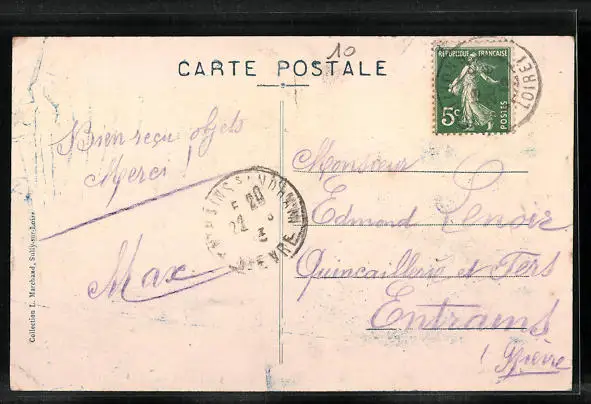 10
CARTE POSTALE
REPUBLIQUE FRANÇAISE
5c
POSTES
LOIRET
Bien reçu objets
Merci !
Max
ENTRAINS S NOHAIN
20
22 3
NIEVRE
Monsieur
Edmond Lenoir
Quincaillerie et Fers
Entrains
Nièvre
Collection L. Marchand, Sully-sur-Loire